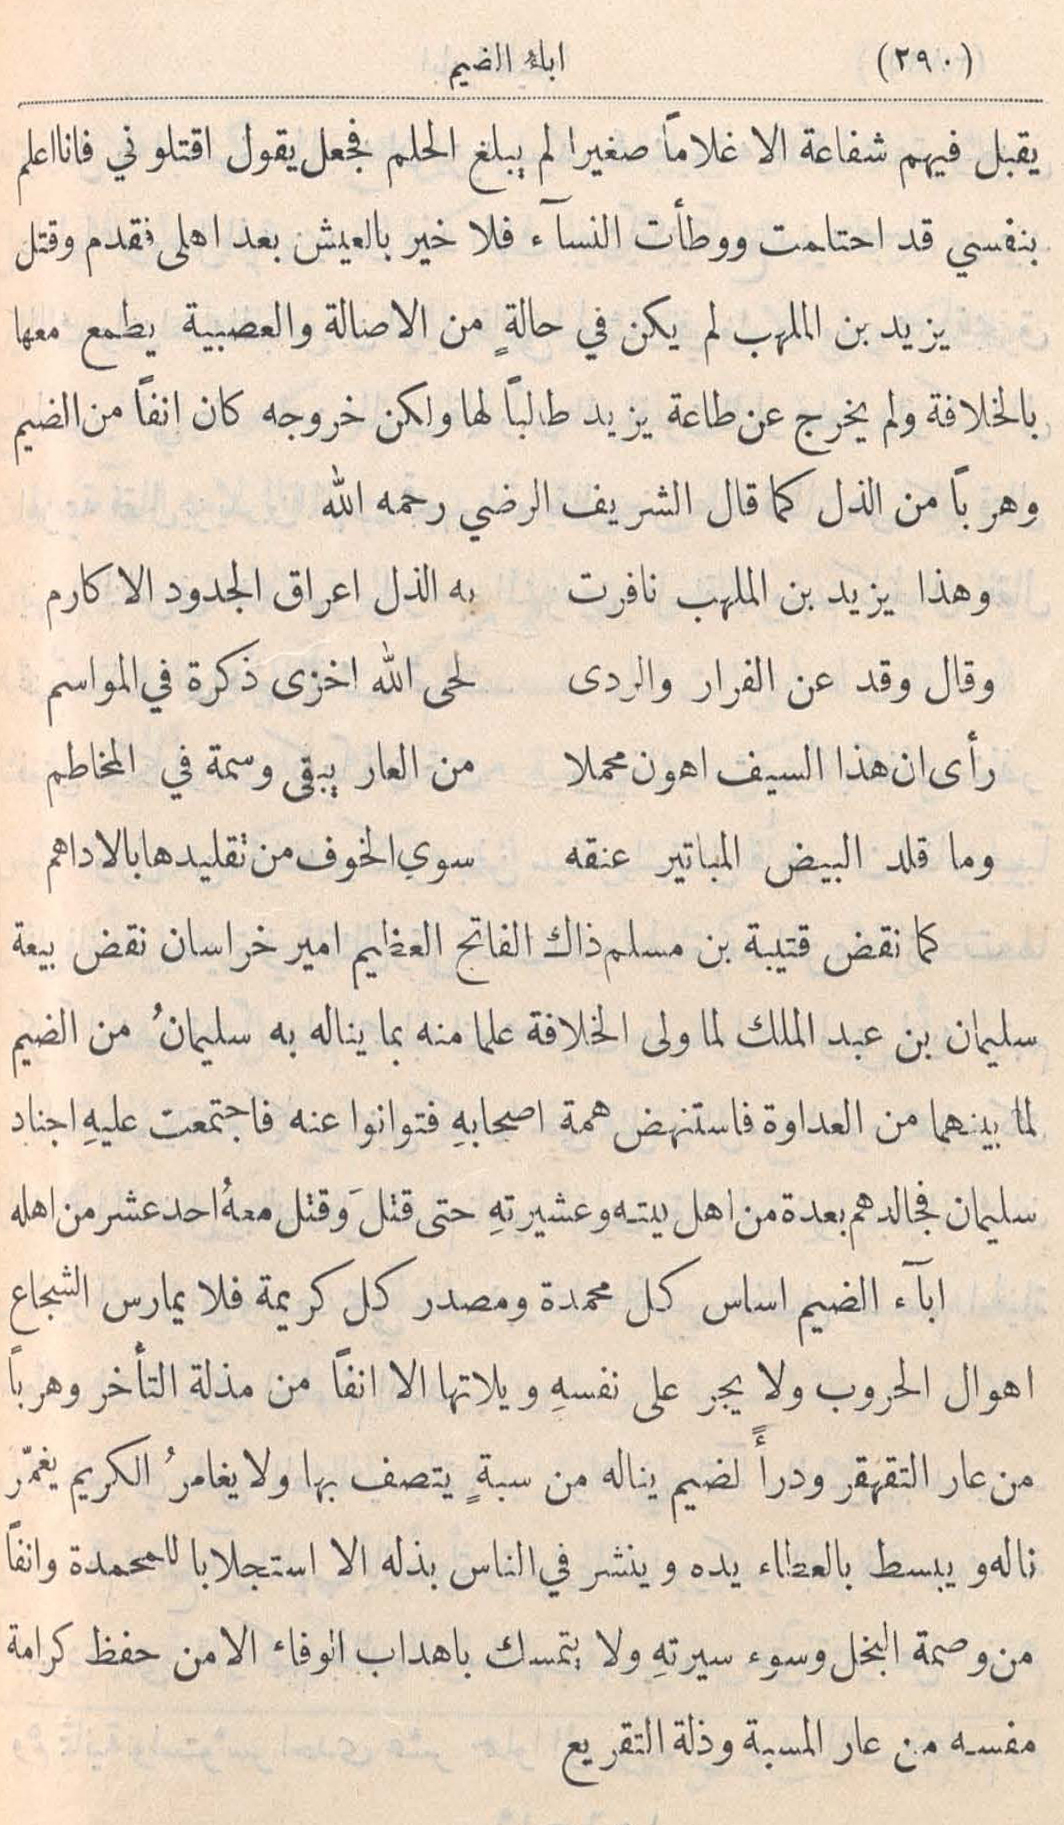 (٢٩٠) اباء الضيم
يقبل فيهم شفاعة الا غلاماً صغيرا لم يبلغ الحلم فجعل يقول اقتلوني فانا اعلم
بنفسي قد احتلمت ووطأت النسآء فلا خير بالعيش بعد اهلى فقدم وقتل
يزيد بن المهلب لم يكن في حالةٍ من الاصالة والعصبية يطمع معها
بالخلافة ولم يخرج عن طاعة يزيد طالباً لها ولكن خروجه كان انفاً من الضيم
وهرباً من الذل كما قال الشريف الرضي رحمه الله
وهذا يزيد بن الملهب نافرت به الذل اعراق الجدود الاكارم
وقال وقد عن الفرار والردى لحى الله اخزى ذكرة في المواسم
رأى ان هذا السيف اهون محملا من العار يبقى وسمة في المخاطم
وما قلد البيض المباتير عنقه سوي الخوف من تقليدها بالاداهم
كما نقض قتيبة بن مسلم ذاك الفاتح العظيم امير خراسان نقض بيعة
سليمان بن عبد الملك لما ولى الخلافة علما منه بما يناله به سليمانُ من الضيم
لما بينهما من العداوة فاستنهض همة اصحابهِ فتوانوا عنه فاجتمعت عليهِ اجناد
سليمان فجالدهم بعدة من اهل بيته وعشيرتهِ حتى قتلَ وقتل معهُ احد عشر من اهله
ابآء الضيم اساس كل محمدة ومصدر كل كريمة فلا يمارس الشجاع
اهوال الحروب ولا يجر على نفسهِ ويلاتها الا انفاً من مذلة التأخر وهرباً
من عار التقهقر ودرأً لضيم يناله من سبةٍ يتصف بها ولا يغامرُ الكريم يغمّر
ناله ويبسط بالعطاء يده وينشر في الناس بذله الا استجلابا للمحمدة وانفاً
من وصمة البخل وسوء سيرتهِ ولا يتمسك باهداب الوفاء الا من حفظ كرامة
مفسه من عار المسبة وذلة التقريع